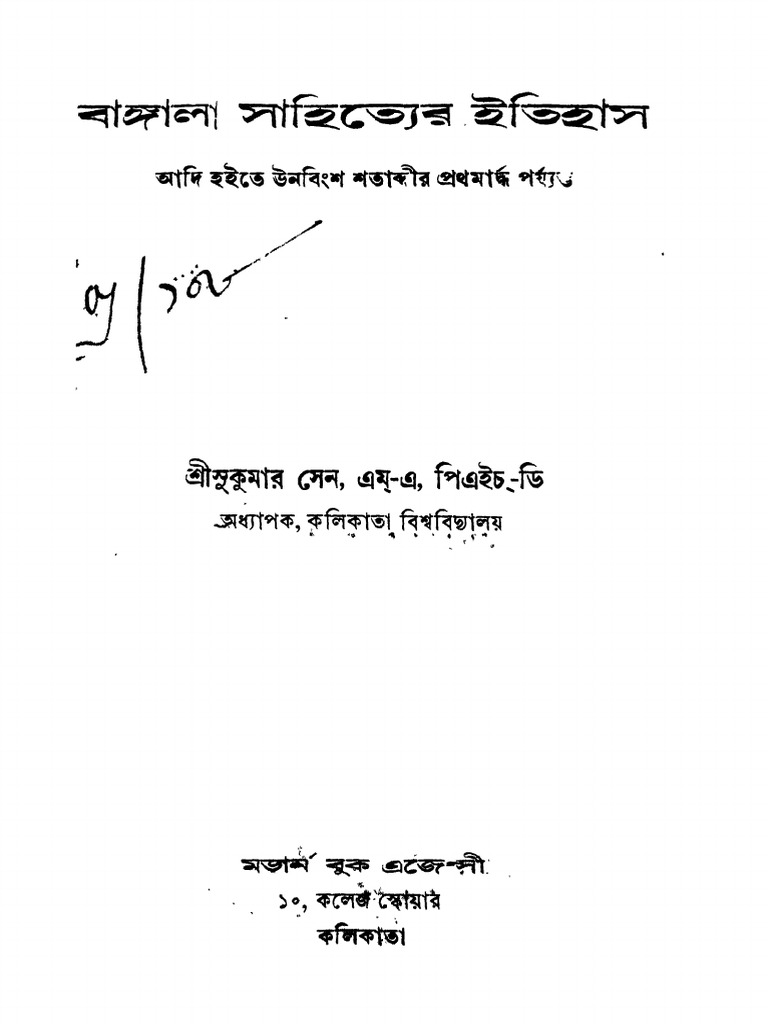 বাঙ্গালা সাহিত্যের ইতিহাস
আদি হইতে ঊনবিংশ শতাব্দীর প্রথমার্দ্ধ পর্য্যন্ত
শ্রীসুকুমার সেন, এম্-এ, পিএইচ্-ডি
অধ্যাপক, কলিকাতা বিশ্ববিদ্যালয়
মডার্ন বুক এজেন্সী
১০, কলেজ স্কোয়ার
কলিকাতা